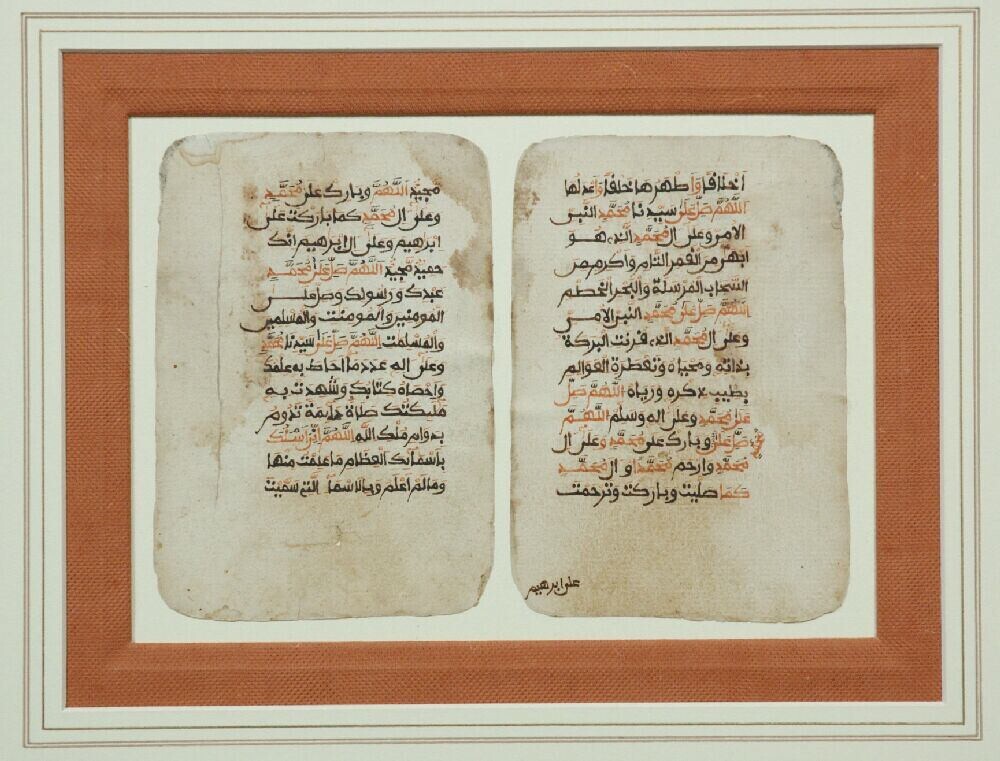 أخلاقا وأطهرها خلقا وأعدلها
اللهم صل على سيدنا محمد النبي
الامي وعلى ال محمد الذي هو
ابهى من القمر التام وأكرم من
السحاب المرسلة والبحر الخطم
اللهم صل على محمد النبي الامي
وعلى ال محمد الذي قرنت البركة
بذاته ومحياه وتعطرت العوالم
بطيب ذكره ورياه اللهم صل
على محمد وعلى اله وسلم اللهم
صل على وبارك على محمد وعلى ال
محمد وارحم محمدا وال محمد
كما صليت وباركت وترحمت
على ابرهيم
مجيد اللهم وبارك على محمد
وعلى ال محمد كما باركت على
ابرهيم وعلى ال ابرهيم انك
حميد مجيد اللهم صل على محمد
عبدك ورسولك وصل على
المومنين والمومنت والمسلمين
والمسلمت اللهم صل على سيدنا محمد
وعلى اله عدد ما احاط به علمك
واحصاه كتابك وشهدت به
مليكتك صلاة دايمة تدوم
بدوام ملك الله اللهم اني اسئلك
باسمائك العظام ما علمت منها
وما لم اعلم وبالاسما التي سميت